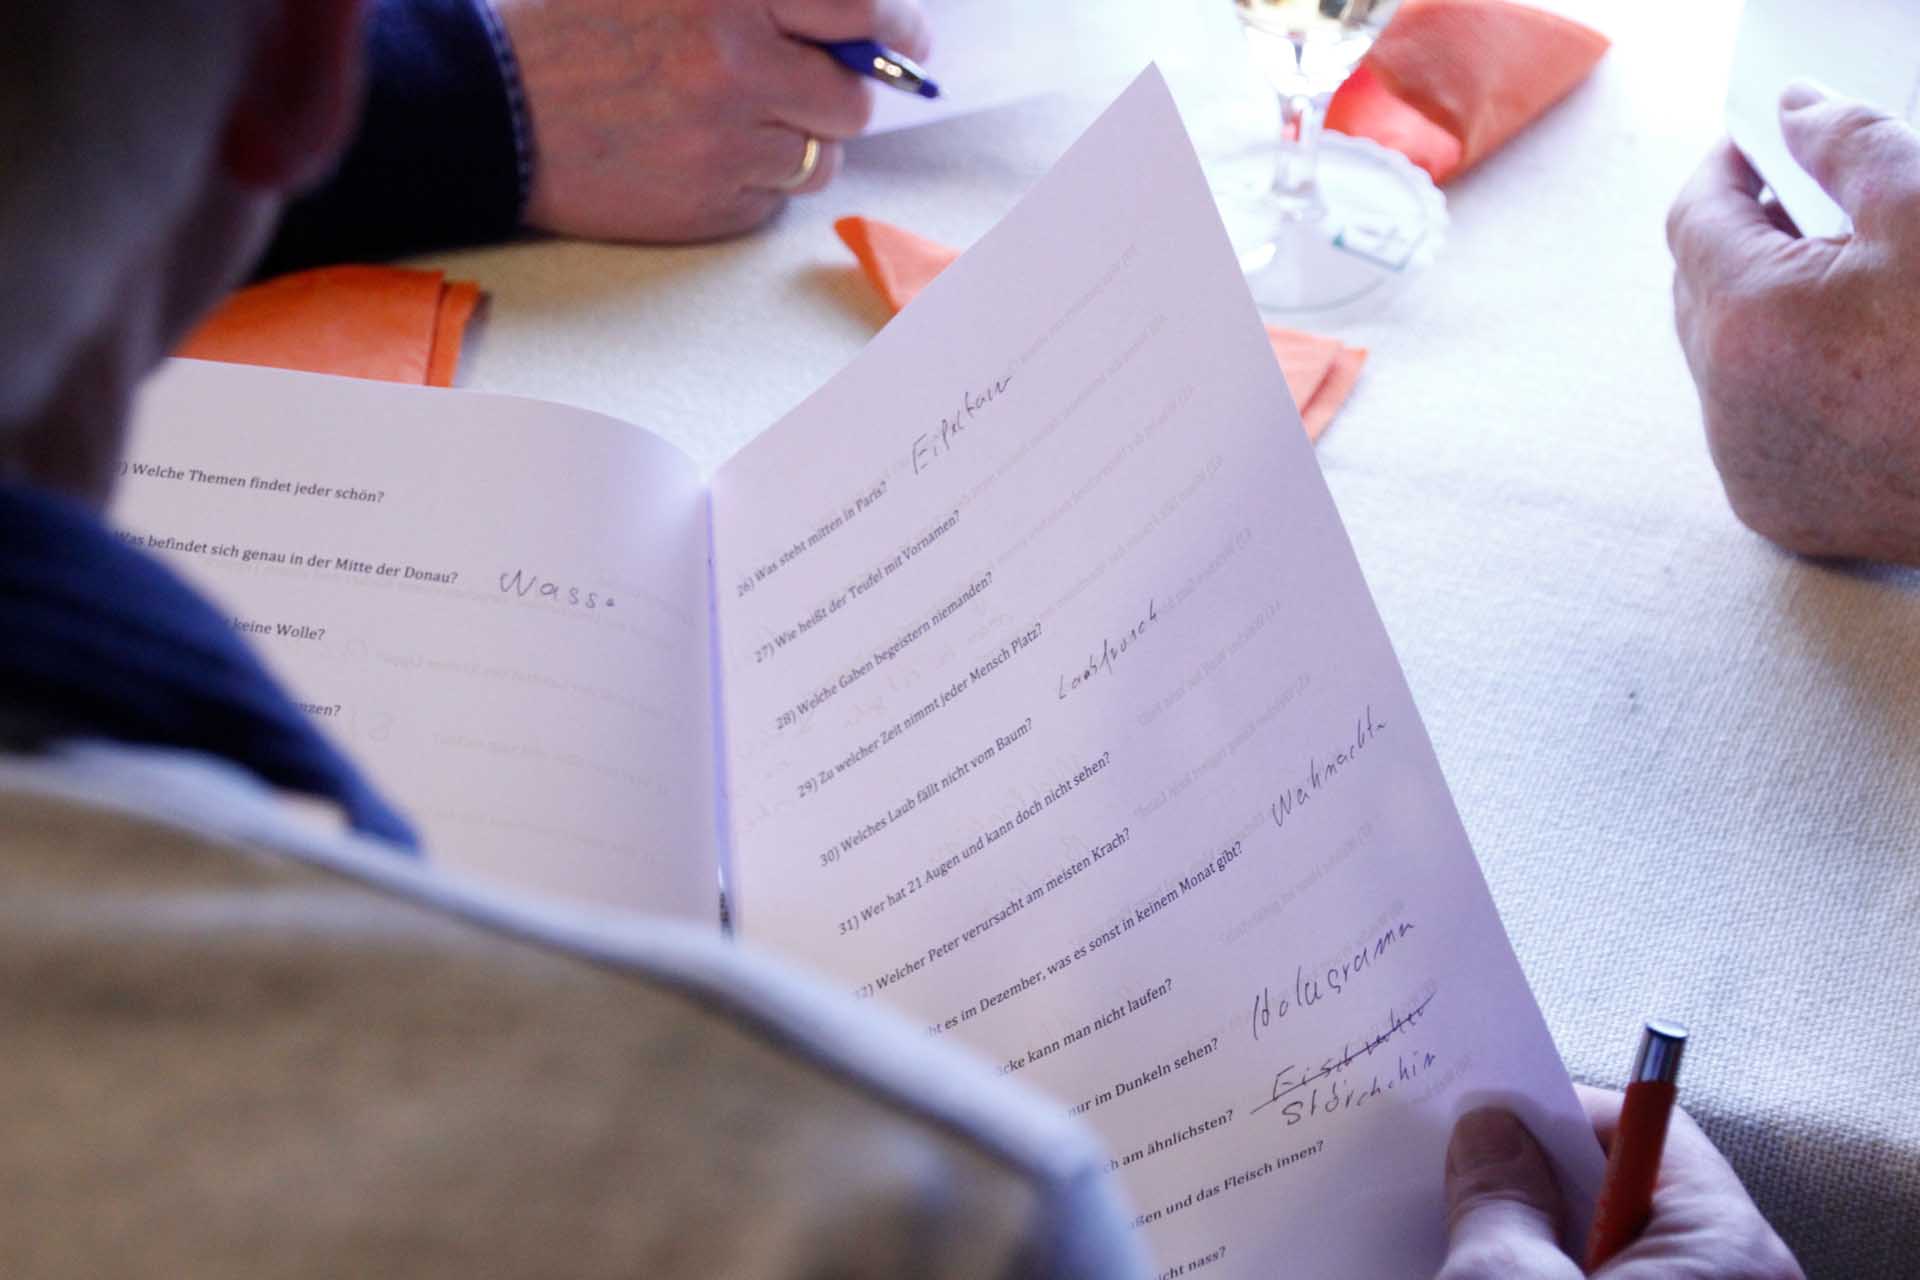 ) Welche Themen findet jeder schön?
Was befindet sich genau in der Mitte der Donau? Wasse
keine Wolle?
nzen?
26) Was steht mitten in Paris?
27) Wie heißt der Teufel mit Vornamen?
28) Welche Gaben begeistern niemanden?
29) Zu welcher Zeit nimmt jeder Mensch Platz?
30) Welches Laub fällt nicht vom Baum? Laubfrosch
31) Wer hat 21 Augen und kann doch nicht sehen?
2) Welcher Peter verursacht am meisten Krach?
bt es im Dezember, was es sonst in keinem Monat gibt? Weihnachte
cke kann man nicht laufen?
nur im Dunkeln sehen? Hologramm
ch am ähnlichsten? Störchchin
ßen und das Fleisch innen?
icht nass?